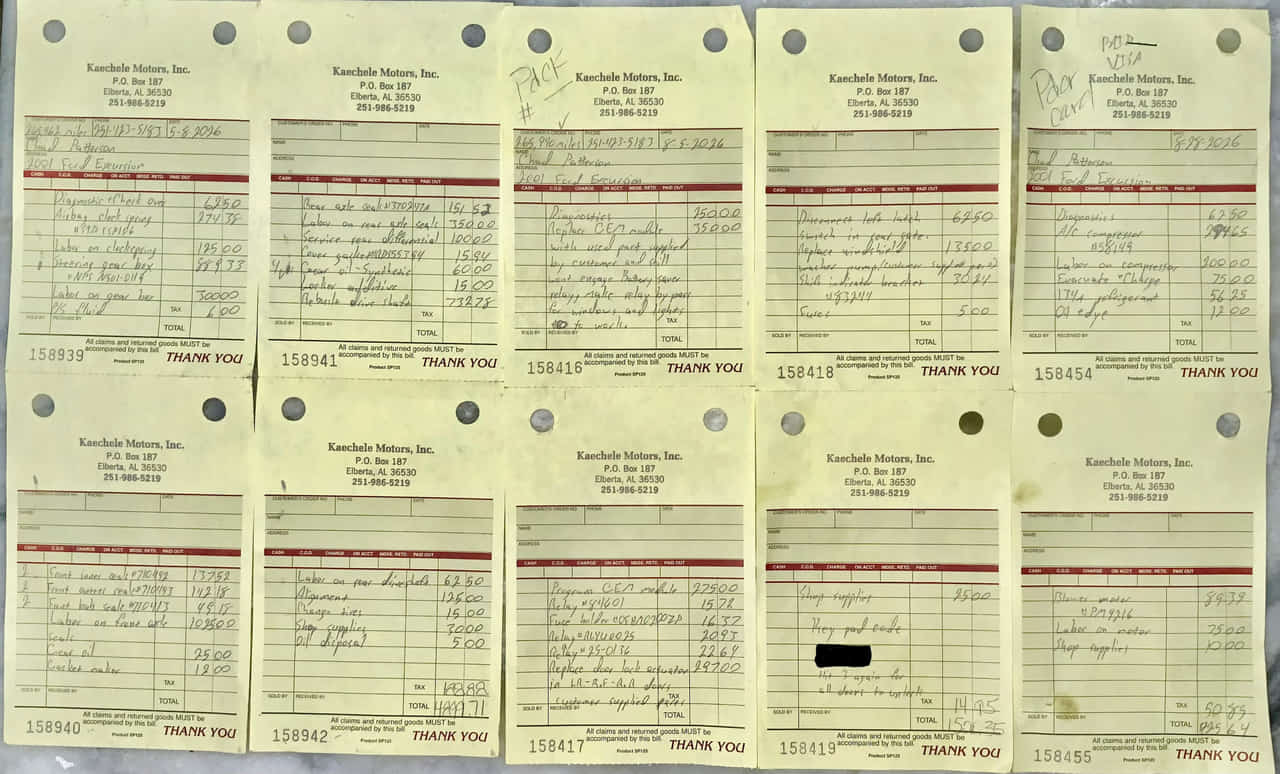 Kaechele Motors, Inc.
P.O. Box 187
Elberta, AL 36530
251-986-5219
CUSTOMER'S ORDER NO. PHONE DATE
miles 251-423-5183 5-8-2026
NAME
Chad Patterson
ADDRESS
2001 Ford Excursion
CASH C.O.D. CHARGE ON ACCT. MDSE. RETD. PAID OUT
Diagnostic + Check over 62 50
Airbag clockspring 274.38
Labor on clockspring 125 00
Steering gear box 889 33
#NPS N501-0114
Labor on gear box 300 00
P/S fluid 6 00
TAX
SOLD BY RECEIVED BY
TOTAL
158939
All claims and returned goods MUST be accompanied by this bill.
Product SP125
THANK YOU
Kaechele Motors, Inc.
P.O. Box 187
Elberta, AL 36530
251-986-5219
CUSTOMER'S ORDER NO. PHONE DATE
NAME
ADDRESS
CASH C.O.D. CHARGE ON ACCT. MDSE. RETD. PAID OUT
Rear axle seals #370247A 151 52
Labor on rear axle seals 350 00
Service rear differential 100 00
Cover gasket 15 94
Gear oil-Synthetic 60 00
Locker additive 15 00
Rebuild drive shaft 732 78
TAX
TOTAL
SOLD BY RECEIVED BY
158941
All claims and returned goods MUST be accompanied by this bill.
Product SP125
THANK YOU
Pack
#
Kaechele Motors, Inc.
P.O. Box 187
Elberta, AL 36530
251-986-5219
CUSTOMER'S ORDER NO. PHONE DATE
265,990 miles 251-423-5183 8-5-2026
NAME
Chad Patterson
ADDRESS
2001 Ford Excursion
CASH C.O.D. CHARGE ON ACCT. MDSE. RETD. PAID OUT
Diagnostics 250 00
Replace GEM module 350 00
with used part supplied
by customer and still
wont engage Battery saver
relay, make relay by pass
for windows and lights
to work.
TAX
SOLD BY RECEIVED BY
TOTAL
158416
All claims and returned goods MUST be accompanied by this bill.
Product SP125
THANK YOU
Kaechele Motors, Inc.
P.O. Box 187
Elberta, AL 36530
251-986-5219
CUSTOMER'S ORDER NO. PHONE DATE
NAME
ADDRESS
CASH C.O.D. CHARGE ON ACCT. MDSE. RETD. PAID OUT
Disconnect left latch 62 50
switch in rear gate.
Replace windshield 135 00
washer pump (customer supplied part)
Shift indicator bracket 30 24
#83244
Fuses 5 00
TAX
SOLD BY RECEIVED BY
TOTAL
158418
All claims and returned goods MUST be accompanied by this bill.
Product SP125
THANK YOU
VISA
Kaechele Motors, Inc.
P.O. Box 187
Elberta, AL 36530
251-986-5219
CUSTOMER'S ORDER NO. PHONE DATE
8-28-2026
NAME
Chad Patterson
ADDRESS
2001 Ford Excursion
CASH C.O.D. CHARGE ON ACCT. MDSE. RETD. PAID OUT
Diagnostics 62 50
A/C compressor
#58149
Labor on compressor 200.00
Evacuate + Charge 75 00
134A refrigerant 56 25
Oil + dye 12 00
TAX
SOLD BY RECEIVED BY
TOTAL
158454
All claims and returned goods MUST be accompanied by this bill.
Product SP125
THANK YOU
Kaechele Motors, Inc.
P.O. Box 187
Elberta, AL 36530
251-986-5219
CUSTOMER'S ORDER NO. PHONE DATE
NAME
ADDRESS
CASH C.O.D. CHARGE ON ACCT. MDSE. RETD. PAID OUT
2 Front inner seals #710492 137 52
2 Front outer seals #710493 142 18
2 Front hub seals #710413 45 18
Labor on front axle 1025 00
seals
Gear oil 25 00
Gasket maker 12 00
TAX
SOLD BY RECEIVED BY
TOTAL
158940
All claims and returned goods MUST be accompanied by this bill.
Product SP125
THANK YOU
Kaechele Motors, Inc.
P.O. Box 187
Elberta, AL 36530
251-986-5219
CUSTOMER'S ORDER NO. PHONE DATE
NAME
ADDRESS
CASH C.O.D. CHARGE ON ACCT. MDSE. RETD. PAID OUT
Labor on rear driveshaft 62 50
Alignment 125 00
Change tires 15 00
Shop supplies 30 00
Oil disposal 5 00
TAX
SOLD BY RECEIVED BY
TOTAL
158942
All claims and returned goods MUST be accompanied by this bill.
Product SP125
THANK YOU
Kaechele Motors, Inc.
P.O. Box 187
Elberta, AL 36530
251-986-5219
CUSTOMER'S ORDER NO. PHONE DATE
NAME
ADDRESS
CASH C.O.D. CHARGE ON ACCT. MDSE. RETD. PAID OUT
Program GEM module 275 00
Relay #84601 15.72
Fuse holder 16.37
Relay #RLYU0025 20 93
Relay #25-0136 22 64
Replace door lock actuator 297.00
in LR-R.F-R.R doors
customer supplied parts
TAX
SOLD BY RECEIVED BY
TOTAL
158417
All claims and returned goods MUST be accompanied by this bill.
Product SP125
THANK YOU
Kaechele Motors, Inc.
P.O. Box 187
Elberta, AL 36530
251-986-5219
CUSTOMER'S ORDER NO. PHONE DATE
NAME
ADDRESS
CASH C.O.D. CHARGE ON ACCT. MDSE. RETD. PAID OUT
Shop supplies 25 00
Key pad code
Hit 3 again for
all doors to unlock
TAX 14 95
SOLD BY RECEIVED BY
TOTAL
158419
All claims and returned goods MUST be accompanied by this bill.
Product SP125
THANK YOU
Kaechele Motors, Inc.
P.O. Box 187
Elberta, AL 36530
251-986-5219
CUSTOMER'S ORDER NO. PHONE DATE
NAME
ADDRESS
CASH C.O.D. CHARGE ON ACCT. MDSE. RETD. PAID OUT
Blower motor 89.39
#PM9216
Labor on motor 75 00
Shop supplies 10 00
TAX 50 85
SOLD BY RECEIVED BY
TOTAL
158455
All claims and returned goods MUST be accompanied by this bill.
Product SP125
THANK YOU